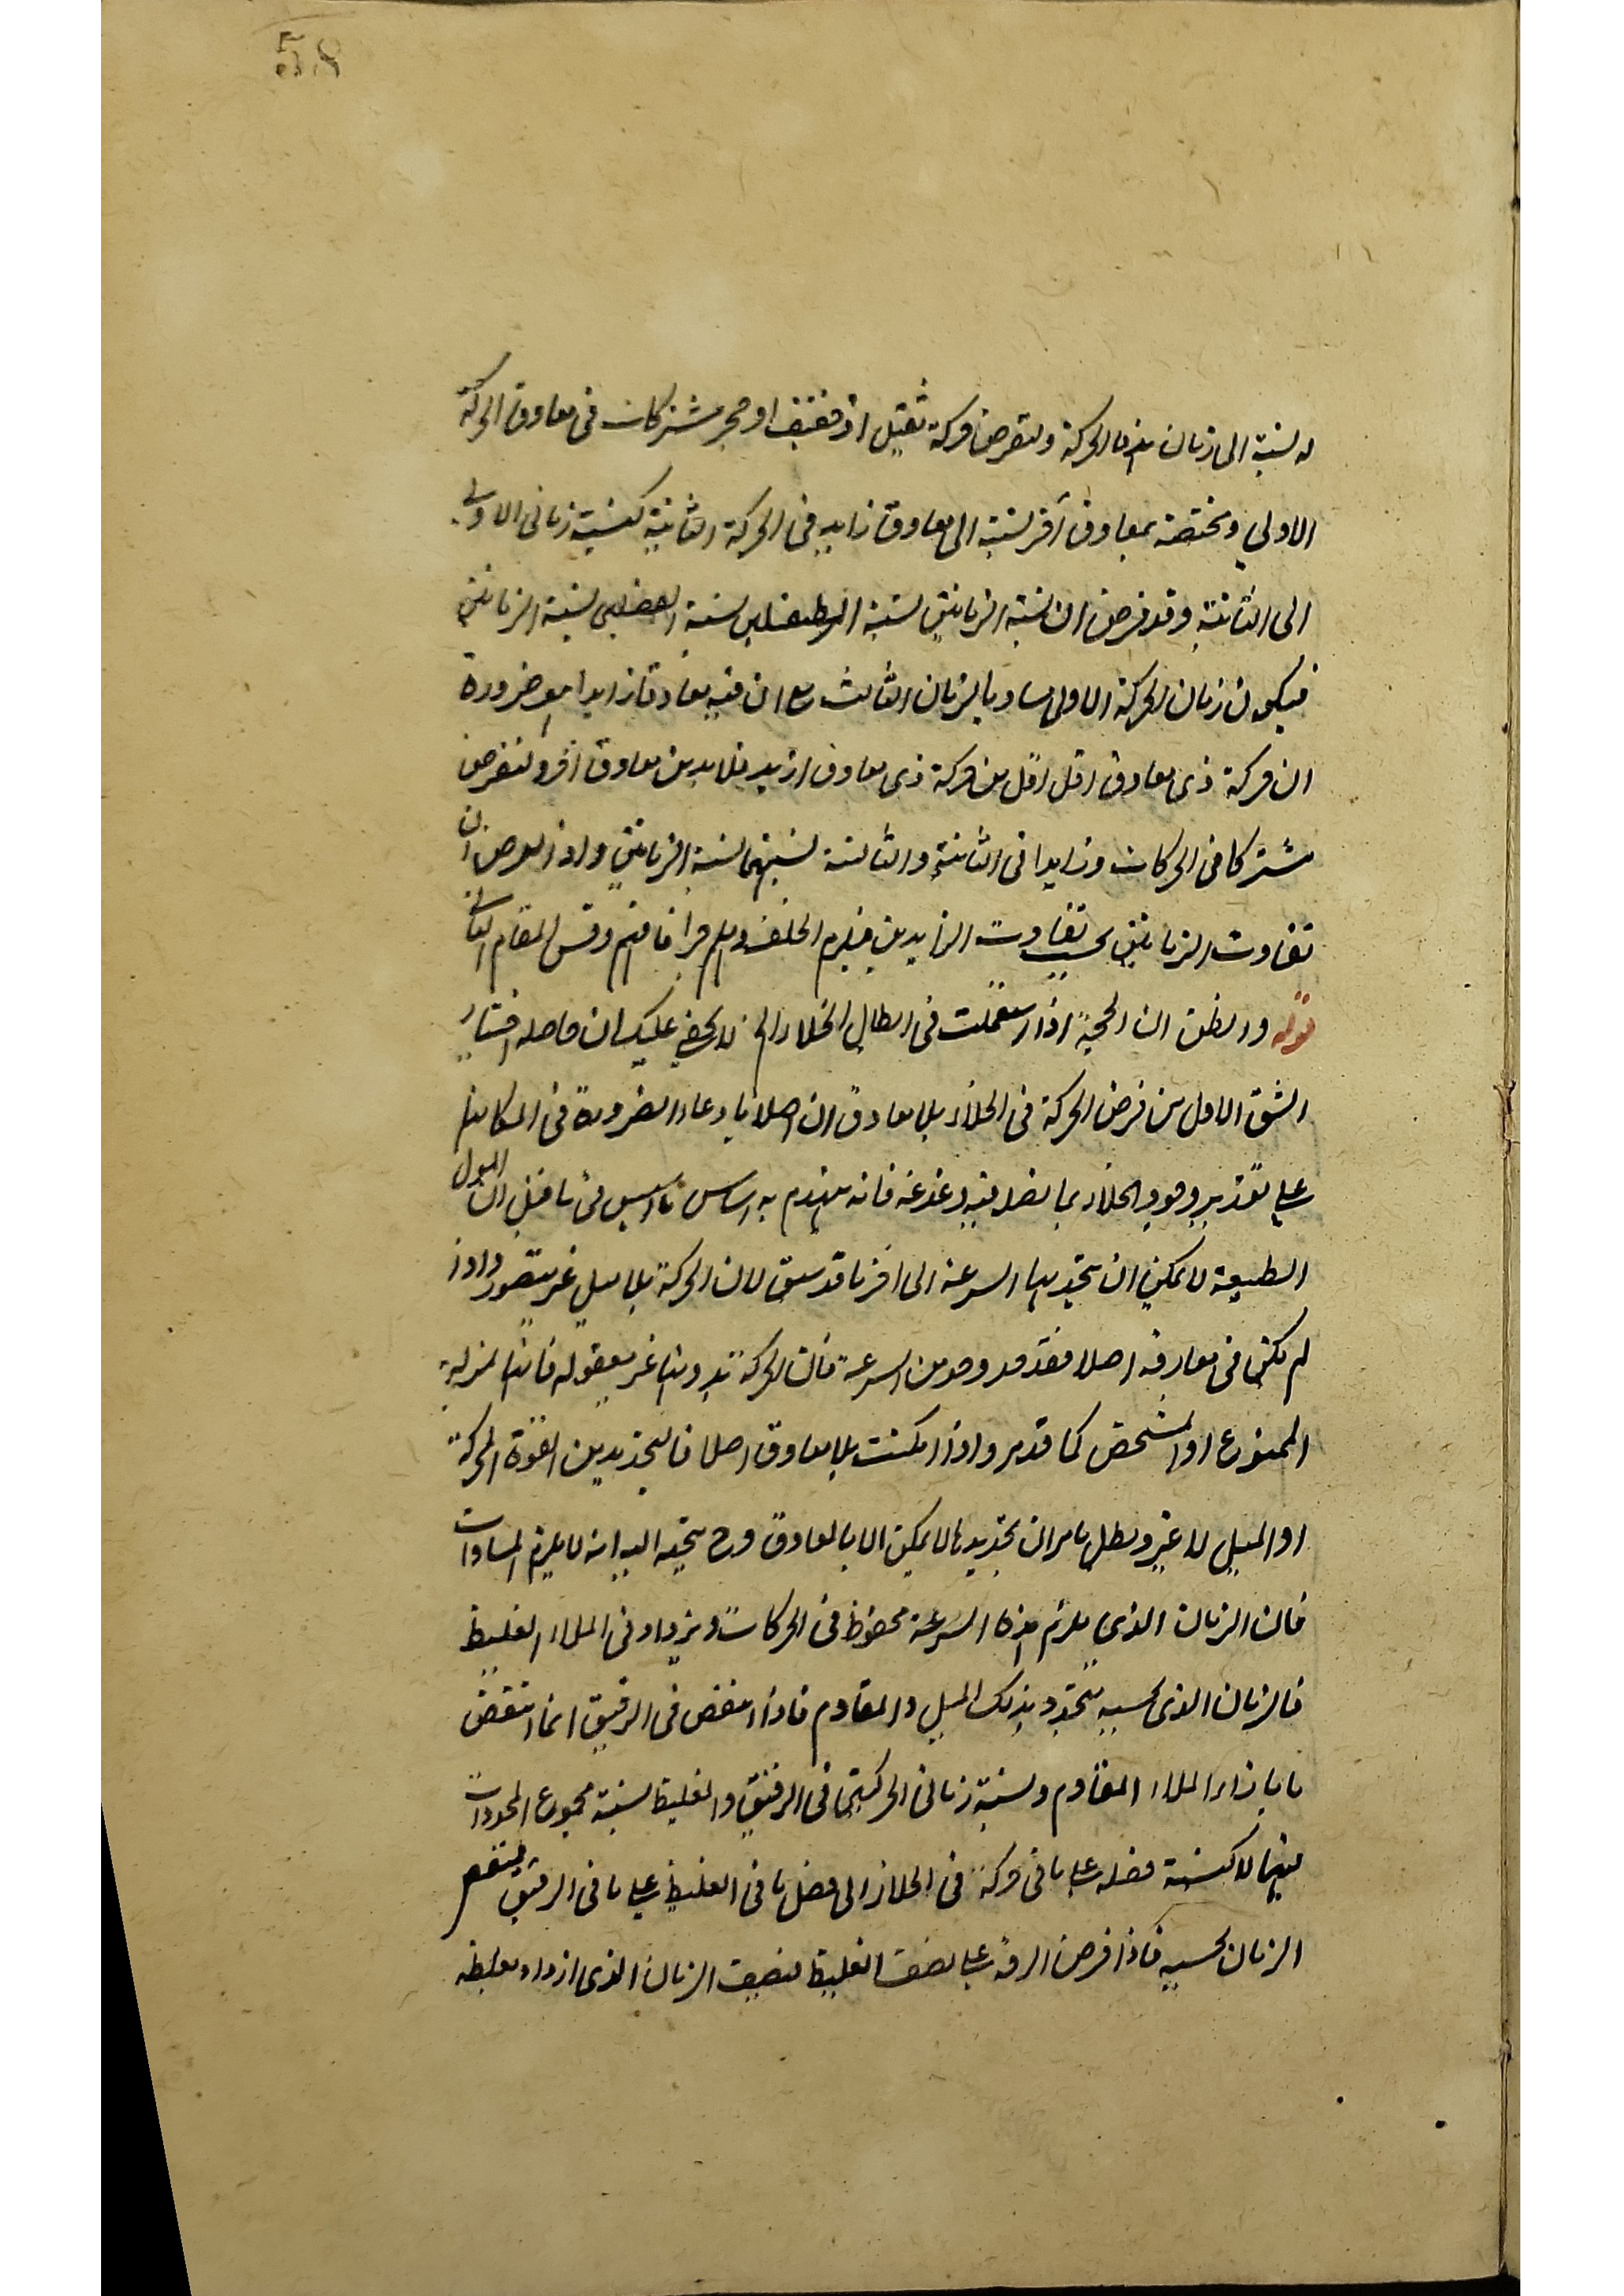 58
له نسبة الى زمان هذه الحركة ولنفرض حركة ثقيل اخف او حجر مشتركات فى معاوق الحركة
الاولى ومختصة بمعاوق آخر نسبته الى معاوق زايد فى الحركة الثانية كنسبة زمانى الاولى
الى الثانية وقد فرض ان نسبة الزمانين نسبة نسبة الزمانين
فيكون زمان الحركة الاولى مساويا لزمان الثالث مع ان فيه معاوقا زايدا ضرورة
ان حركة ذى معاوق اقل اقل من حركة ذى معاوق ازيد فلا بد من معاوق آخر ولنفرض
مشتركا فى الحركات وزايدا فى الثانية والثالثة نسبتهما نسبة الزمانين واذا فرض ان
تفاوت الزمانين بحسب تفاوت الزايدين فيلزم الخلف وهلم جرا فافهم وقس المقام الثانى
قوله والظن ان الحجة اذا استعملت فى ابطال الخلاء الخ لا يخفى عليك ان حاصله اختيار
الشق الاول من فرض الحركة فى الخلاء بلا معاوق اصلا بادعاء الضرورة فى امكانها
على تقدير وجود الخلاء فيه دغدغة فانه ينهدم به اساس تاسيس فى ما قبل ان الميول
الطبيعة لا يمكن ان يتحدد بها السرعة الى آخر ما قد سبق لان الحركة بلا ميل غير متصور واذا
لم يكن فى معاوقة اصلا فقد من السرعة فان الحركة بدونها غير معقولة فانها بمنزلة
المنوع او المشخص كما قد مر واذا امكنت بلا معاوق اصلا فالتحديد من القوة المحركة
او الميل لا غير وبطل ما مر ان تحديدها لا يمكن الا بالمعاوق وح يتجه اليه انه لا يلزم المساوات
فان الزمان الذى يلزم هذه السرعة محفوظ فى الحركات ويزداد فى الملاء الغليظ
فالزمان الذى بحسبه يتحدد بذلك الميل والمقاوم فاذا انتقض فى الرقيق انما انتقض
ما بازاء الملاء المقاوم ونسبة زمانى الحركتين فى الرقيق والغليظ نسبة مجموع المحددات
فيهما لا كنسبة فضله على ما فى حركة فى الخلاء الى فضل ما فى الغليظ على ما فى الرقيق
الزمان بحسبه فاذا فرض الرقة على نصف الغليظ تنصف الزمان الذى ازداد بغلظه